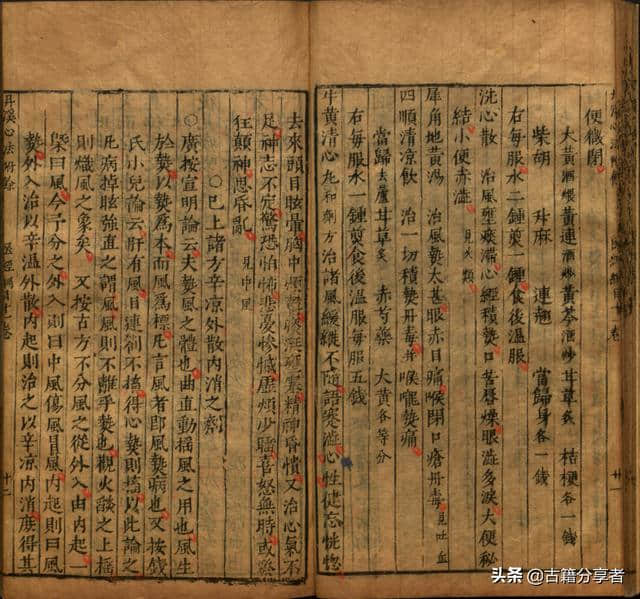 便秘閉
大黃酒煨 黃連酒炒 黃芩酒炒 甘草炙 桔梗各一錢
柴胡 升麻 連翹 當歸身各一錢
右每服水二鍾煎一鍾食後溫服
洗心散 治風壅痰滯心經積熱口苦唇燥眼澁多淚大便秘
結小便赤澁 見火類
犀角地黃湯 治風熱太甚眼赤目痛喉閉口瘡丹毒 見吐血
四順清凉飲 治一切積熱丹毒喉嚨熱痛
當歸去蘆 甘草炙 赤芍藥 大黃各等分
右每服水一鍾煎食後溫服每服五錢
牛黃清心丸 和劑方治諸風緩縱不隨語蹇澁心性健忘恍惚
去來頭目眩暈胸中煩鬱痰涎壅塞精神昏憒又治心氣不
足神志不定驚恐怕怖悲憂慘慽虛煩少睡喜怒無時或發
狂顛神思昏亂 見中風
○已上諸方辛凉外散內消之劑
○廣按宣明論云夫熱風之體也曲直動搖風之用也風生
於熱以熱爲本而風爲標凡言風者即風熱病也又按錢
氏小兒論云肝有風目連劄不搐得心熱則搐以此論之
凡病掉眩強直之謂風風則不離乎熱也觀火燄之上搖
則熾風之象矣 又按古方不分風之從外入由內起一
槩曰風今予分之外入則曰中風傷風冒風內起則曰風
熱外入治以辛溫外散內起則治之以辛凉內消庶得其
丹溪心法附餘
十二
头条 @古籍分享者